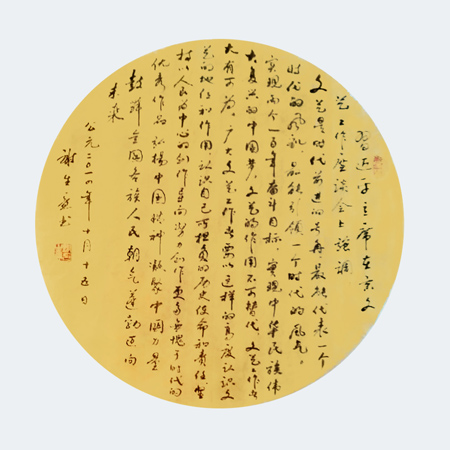 习近平主席在京文
艺工作座谈会上强调
文艺是时代前进的号角最能代表一个
时代的风貌最能引领一个时代的风气
实现两个一百年奋斗目标实现中华民族伟
大复兴的中国梦文艺的作用不可替代文艺工作者
大有可为广大文艺工作者要从这样的高度认识文
艺的地位和作用认识自己所担负的历史使命和责任坚
持以人民为中心的创作导向努力创作更多无愧于时代的
优秀作品弘扬中国精神凝聚中国力量
鼓舞全国各族人民朝气蓬勃迈向
未来
公元二〇一四年十月十五日
谢生